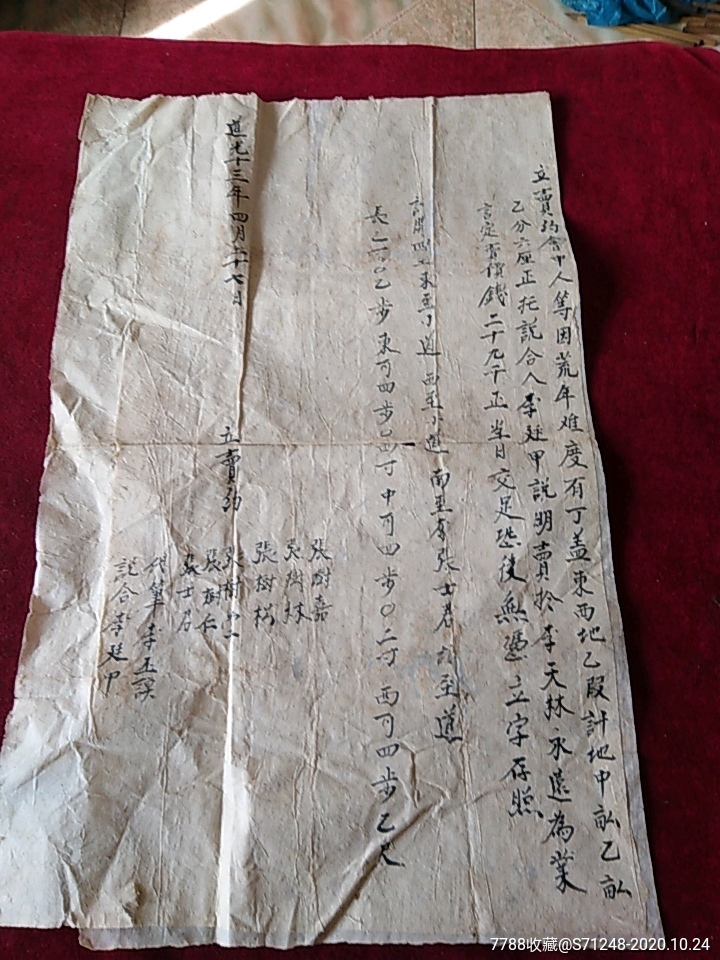 立賣約會中人等因荒年难度有丁盖東西地乙段計地中畝乙畝
乙分六厘正托説合人李廷甲説明賣於李天林永遠為業
言定賣價錢二十九千正当日交足恐後無憑立字存照
計開四至東至小道西至小道南至李張士君北至道
長一百〇乙步東可四步〇四寸中可四步〇二寸西可四步乙尺
道光十三年四月二十七日 立賣約
張樹嘉
張樹林
張樹
張樹
張樹仁
張士君
代筆李玉
説合李廷甲
7788收藏@S71248-2020.10.24